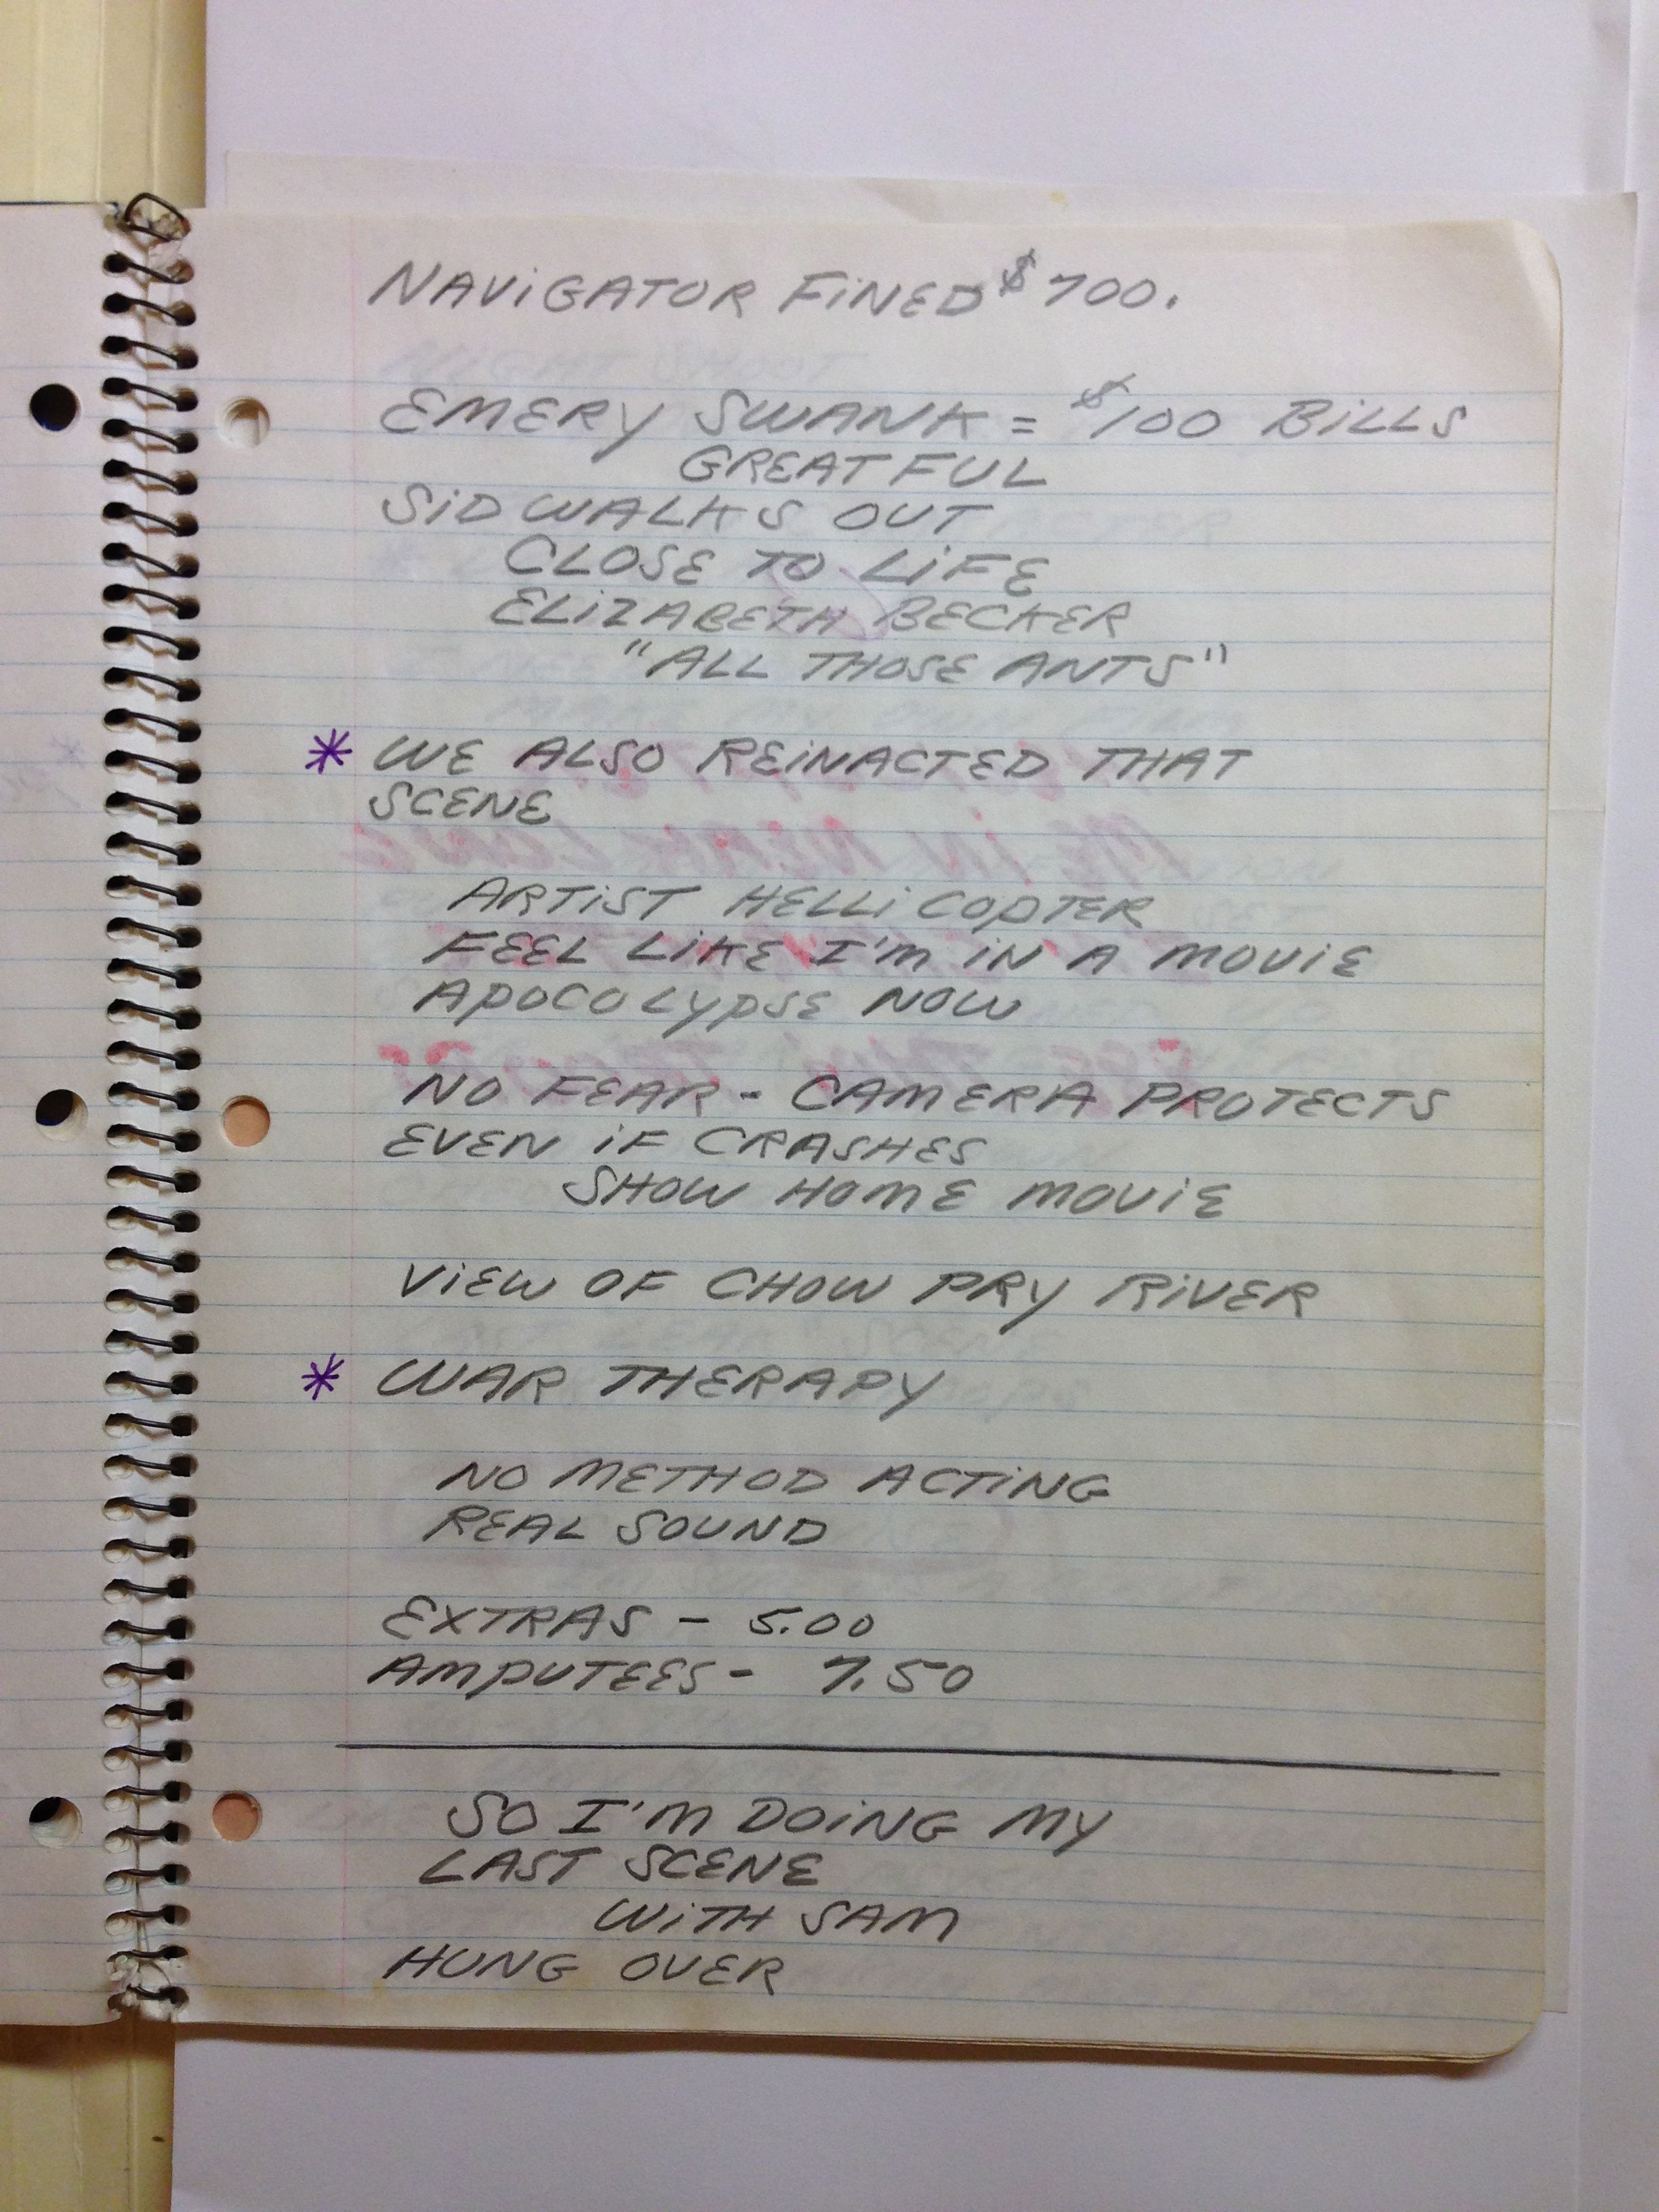 NAViGATOR FiNED $700.
EMERY SWANK = $100 BiLLS
GREATFUL
SiD WALKS OUT
CLOSE TO LiFE
ELiZABETH BECKER
"ALL THOSE ANTS"
* WE ALSO REiNACTED THAT
SCENE
ARTiST HELLiCOPTER
FEEL LiKE I'M iN A MOViE
APOCOLYPSE NOW
NO FEAR - CAMERA PROTECTS
EVEN iF CRASHES
SHOW HOME MOViE
ViEW OF CHOW PRY RiVER
* WAR THERAPY
NO METHOD ACTiNG
REAL SOUND
EXTRAS - 5.00
AMPUTEES - 7.50
SO I'M DOiNG MY
LAST SCENE
WiTH SAM
HUNG OVER